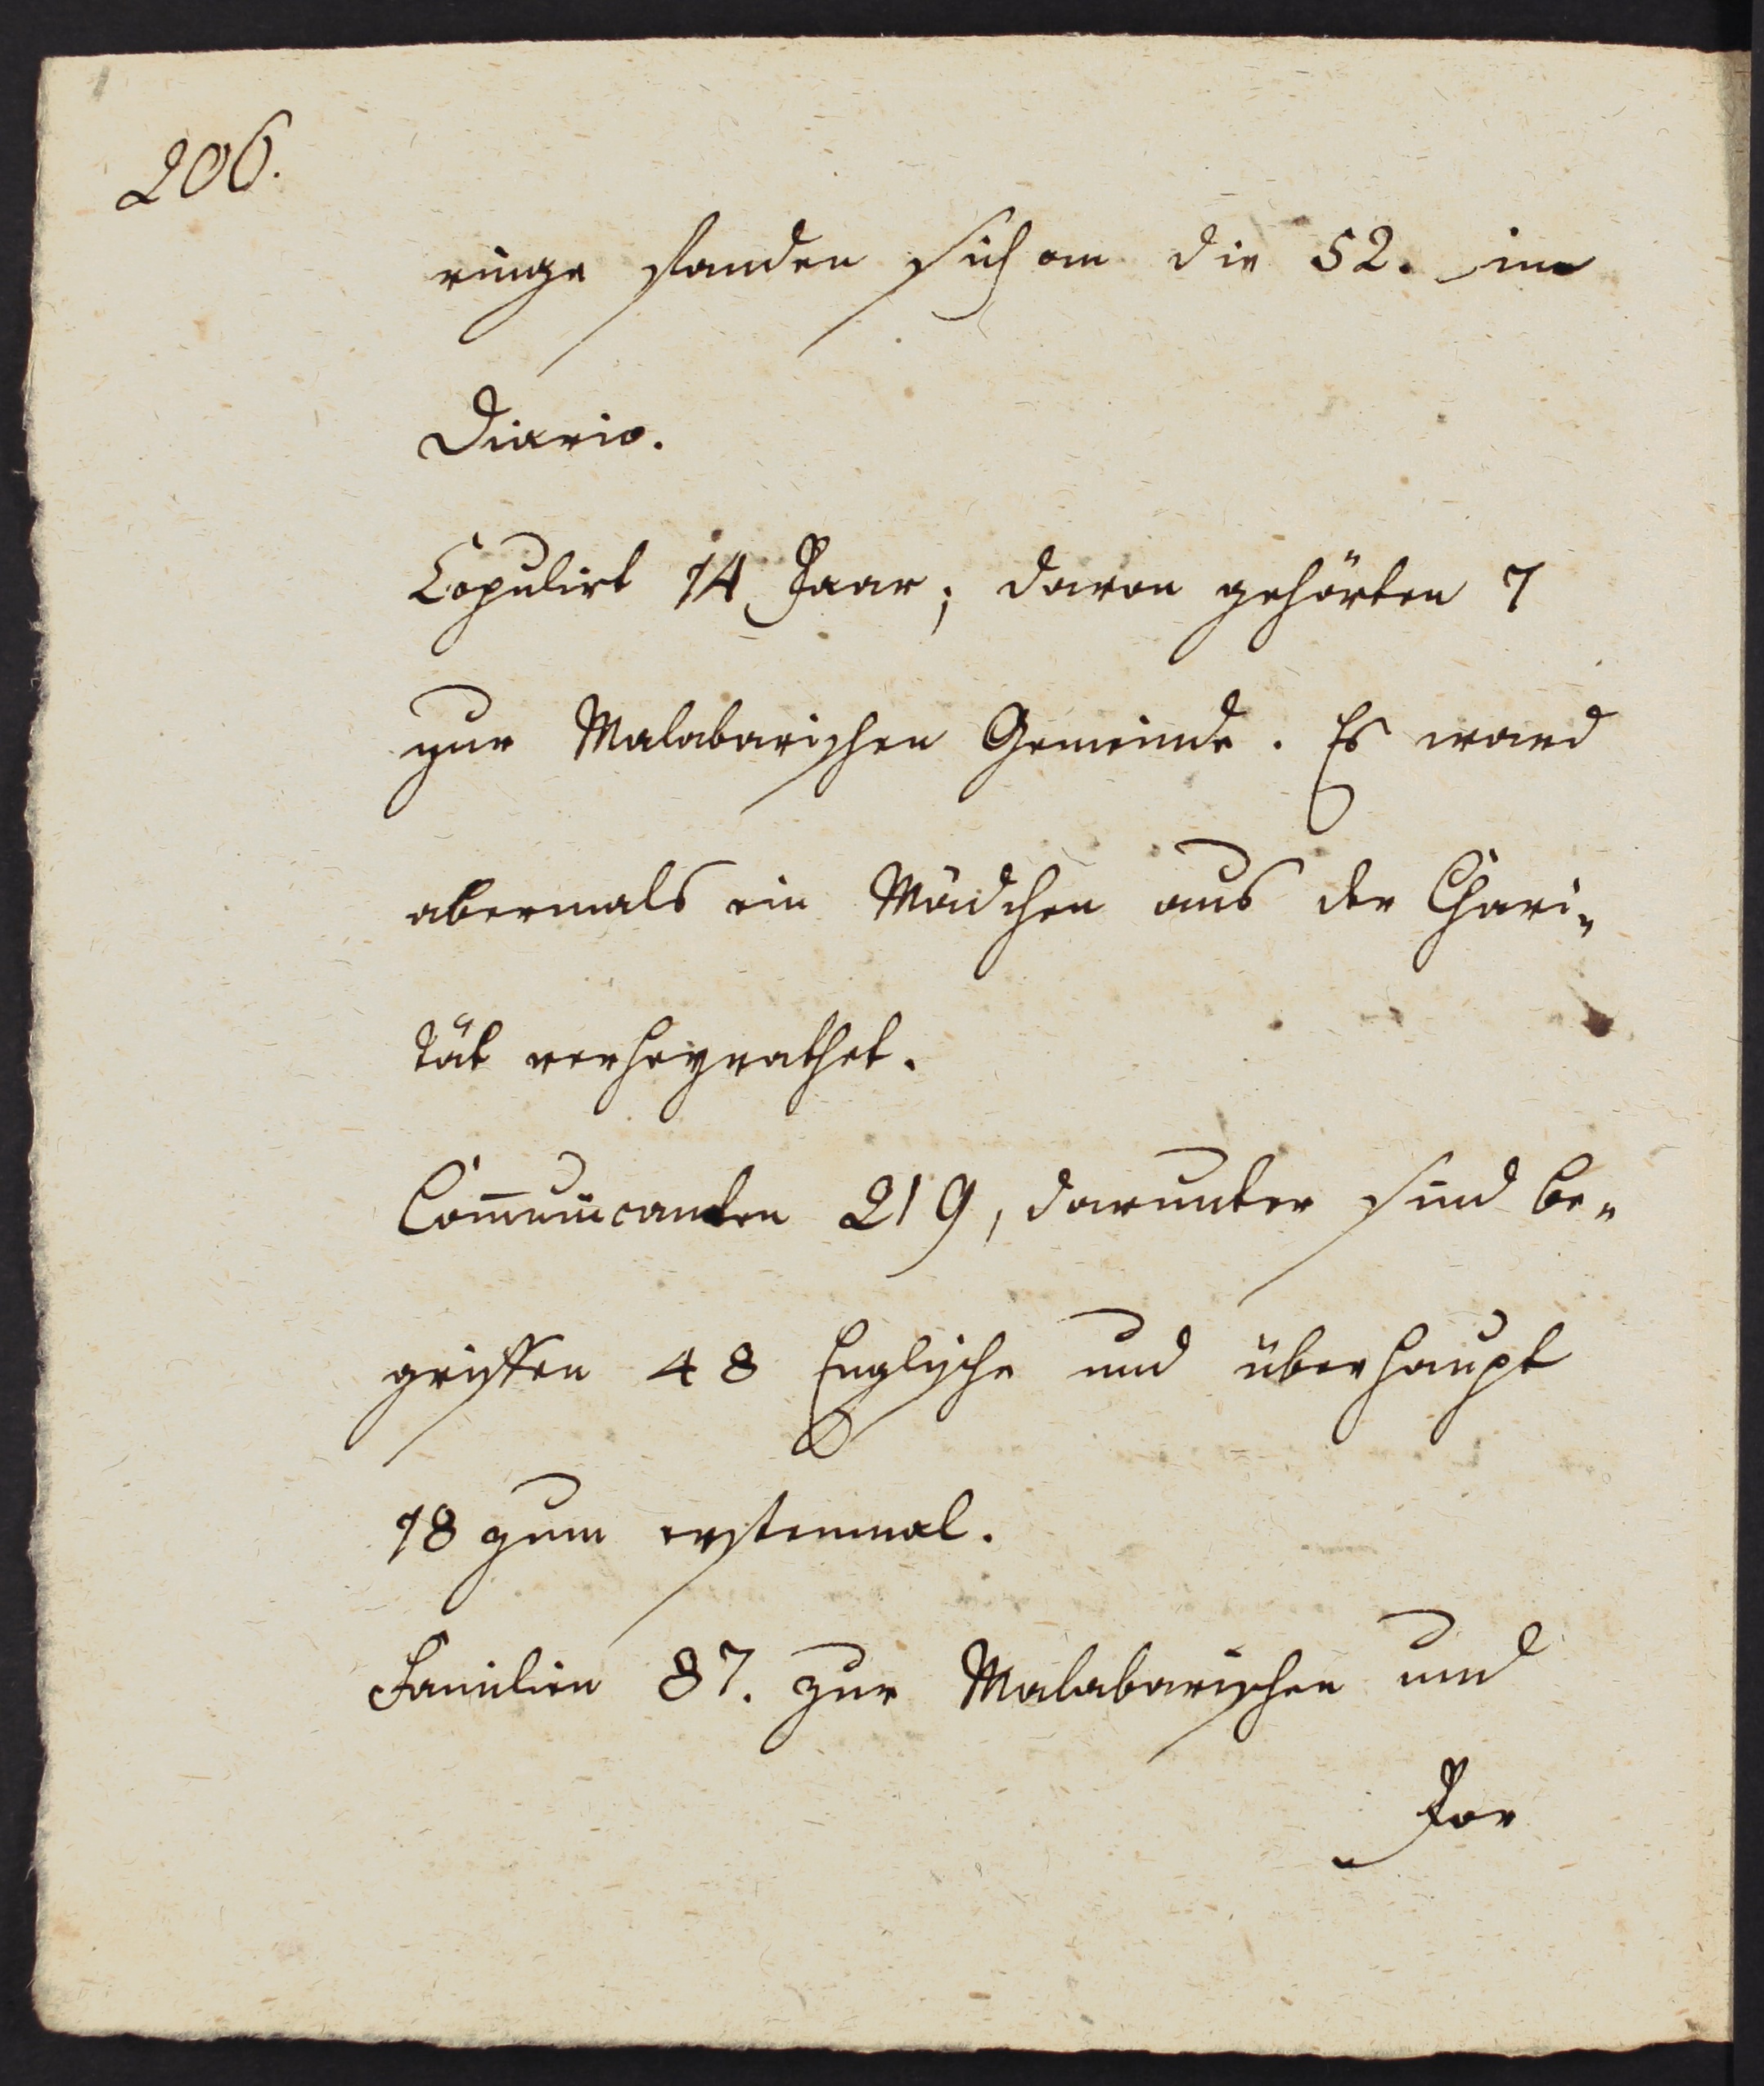 206.
einige standen sich am die 52. im
Diario.
Copulirt 14 Paar; davon gehörten 7
zur Malabarischen Gemeinde. Es ward
abermals ein Mädchen aus der Chari-
tät verheyrathet.
Com̅unicanten 219, darunter sind be-
griffen 48 Englische und überhaupt
18 zum erstenmal.
Familien 87. zur Malabarischen und
Por